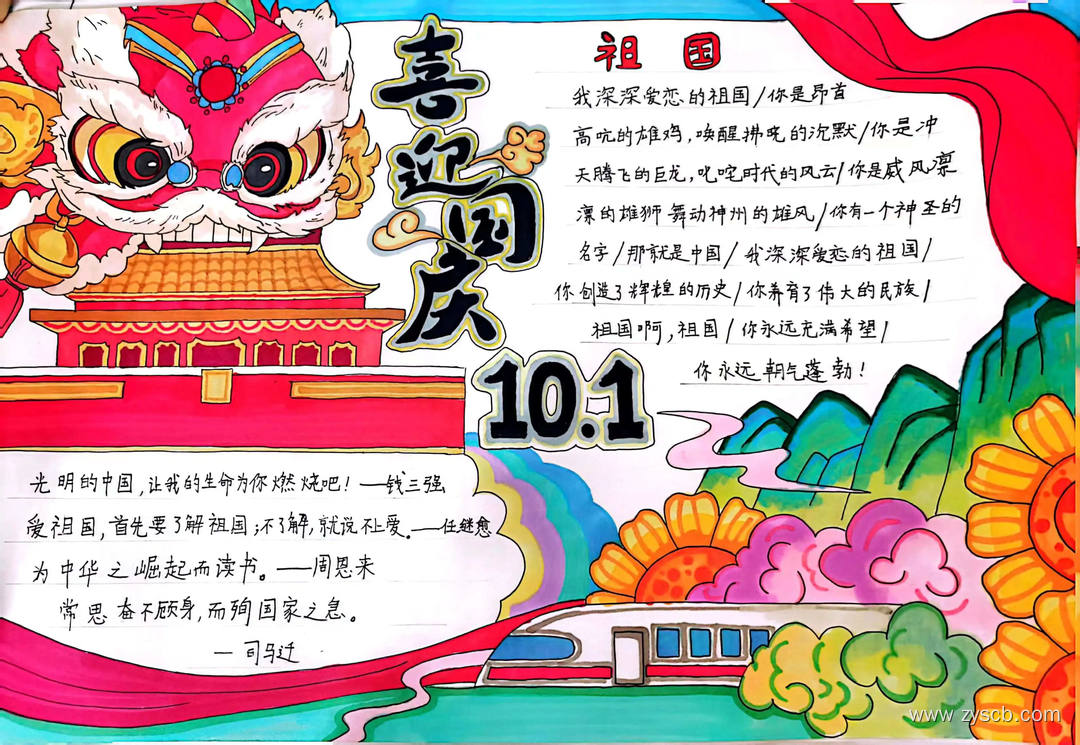 喜迎国庆
10.1
祖国
我深深爱恋的祖国/你是昂首
高吭的雄鸡,唤醒拂晓的沉默/你是冲
天腾飞的巨龙,叱咤时代的风云/你是威风凛
凛的雄狮舞动神州的雄风/你有一个神圣的
名字/那就是中国/我深深爱恋的祖国/
你创造了辉煌的历史/你养育了伟大的民族/
祖国啊,祖国/你永远充满希望/
你永远朝气蓬勃!
光明的中国,让我的生命为你燃烧吧!—钱三强
爱祖国,首先要了解祖国;不了解,就说不上爱。——任继愈
为中华之崛起而读书。——周恩来
常思奋不顾身,而殉国家之急。
—司马迁
www.zyscb.com